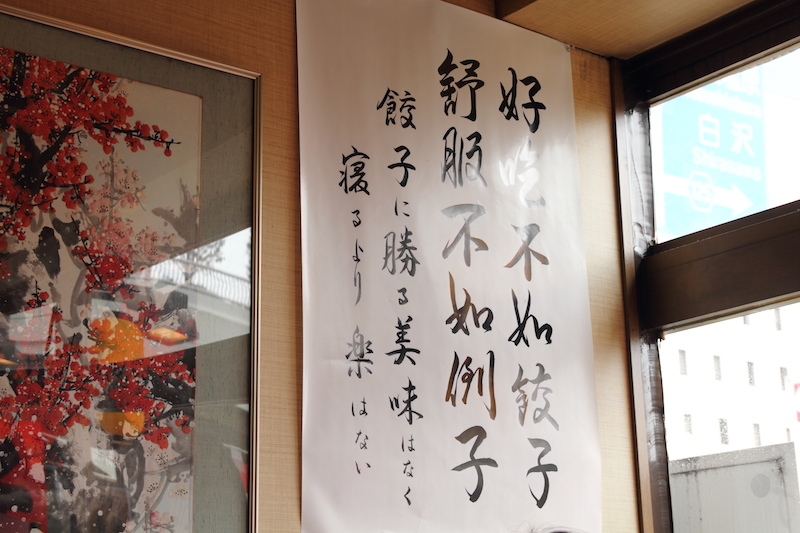 好吃不如餃子
舒服不如例子
餃子に勝る美味はなく
寝るより楽はない
白沢